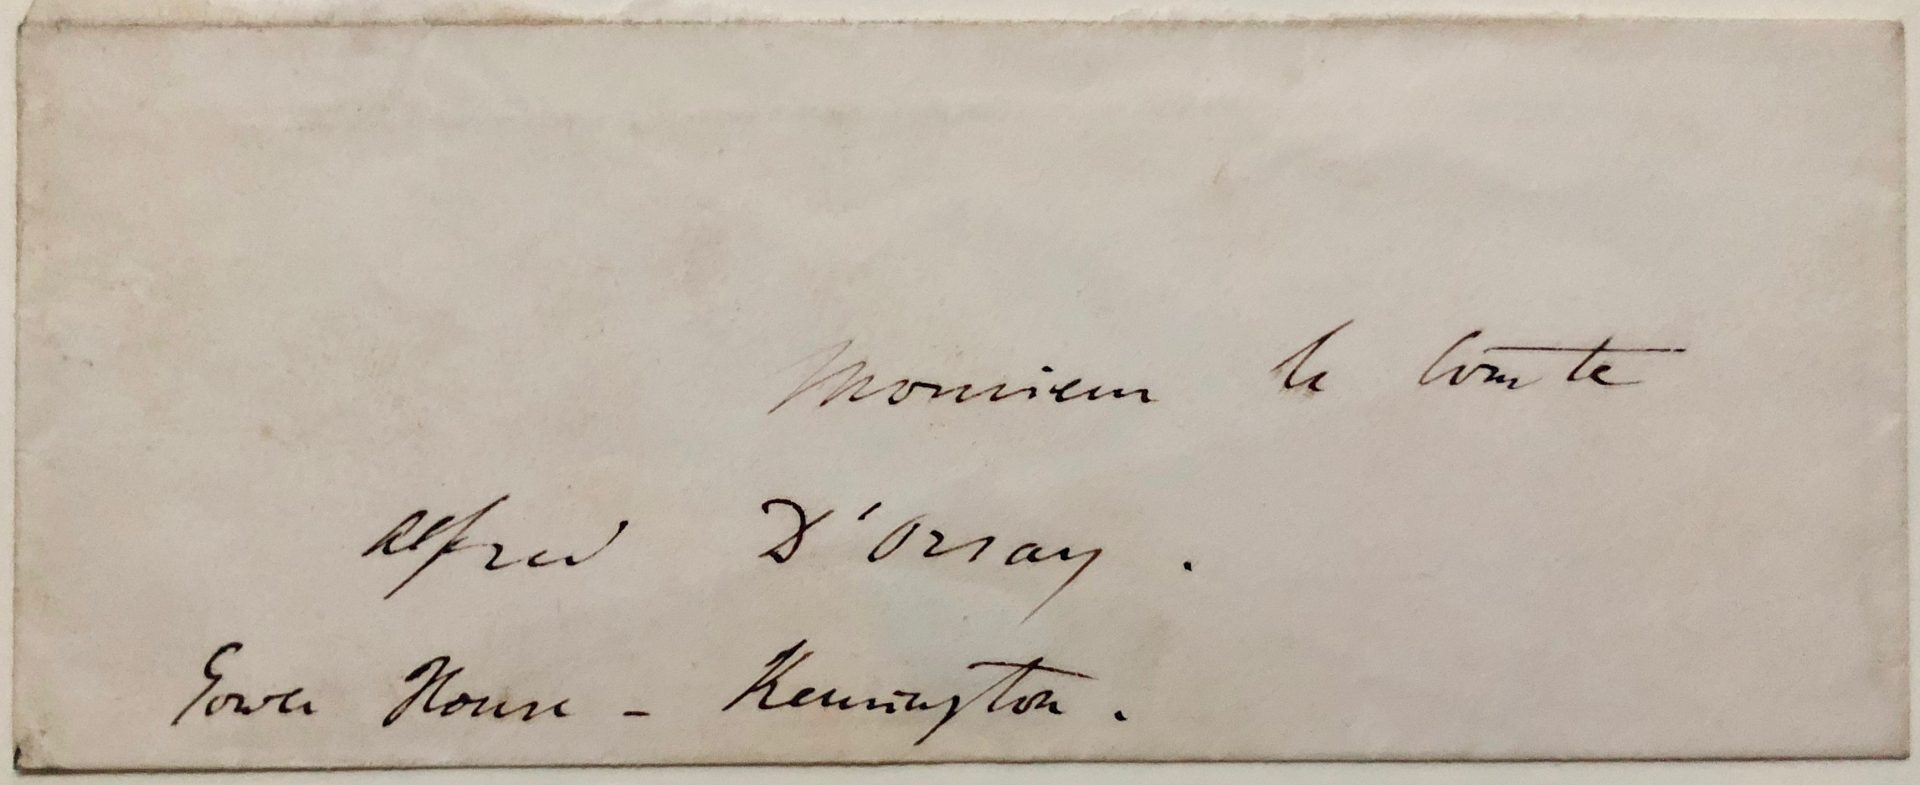 Monsieur le Comte
Alfred D'Orsay.
Gower House - Kensington.